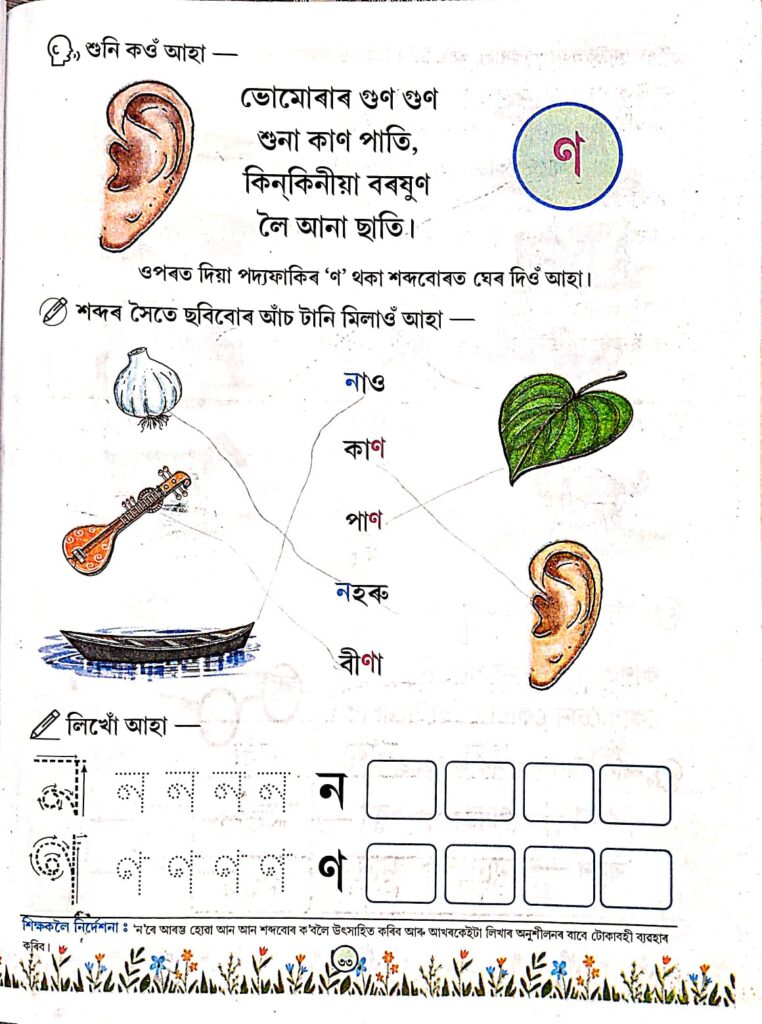 শুনি কওঁ আহা —
ভোমোৰাৰ গুণ গুণ
শুনা কাণ পাতি,
কিন্‌কিনীয়া বৰষুণ
লৈ আনা ছাতি।
ণ
ওপৰত দিয়া পদ্যফাকিৰ ‘ণ’ থকা শব্দবোৰত ঘেৰ দিওঁ আহা।
শব্দৰ সৈতে ছবিবোৰ আঁচ টানি মিলাওঁ আহা —
নাও
কাণ
পাণ
নহৰু
বীণা
লিখোঁ আহা —
ন ন ন ন ন ন
ণ ণ ণ ণ ণ ণ
শিক্ষকলৈ নিৰ্দেশনা : ‘ন’ৰে আৰম্ভ হোৱা আন আন শব্দবোৰ ক’বলৈ উৎসাহিত কৰিব আৰু আখৰকেইটা লিখাৰ অনুশীলনৰ বাবে টোকাবহী ব্যৱহাৰ
কৰিব।
৩৩